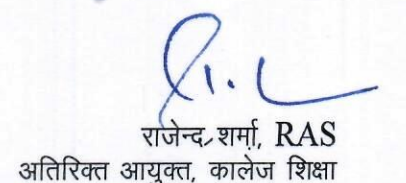 राजेन्द्र शर्मा, RAS
अतिरिक्त आयुक्त, कालेज शिक्षा